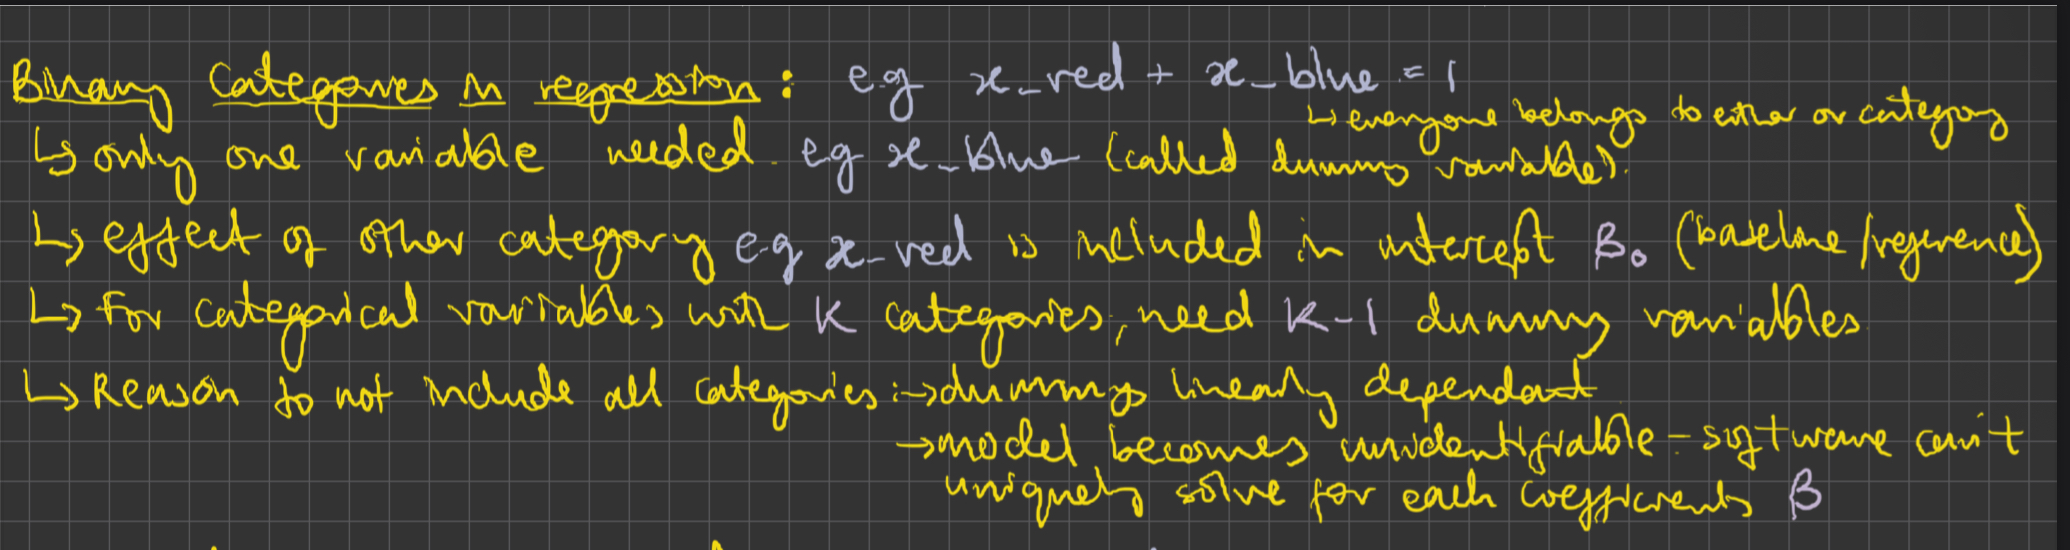 Binary Categories in regression: e.g x_red + x_blue = 1
↳ everyone belongs to either or category
↳ only one variable needed. e.g x_blue (called dummy variable).
↳ effect of other category e.g x_red is included in intercept β₀ (baseline/reference)
↳ For categorical variables with K categories, need K-1 dummy variables
↳ Reason to not include all categories: → dummys linearly dependant
→ model becomes unidentifiable - software can't
uniquely solve for each coefficients β